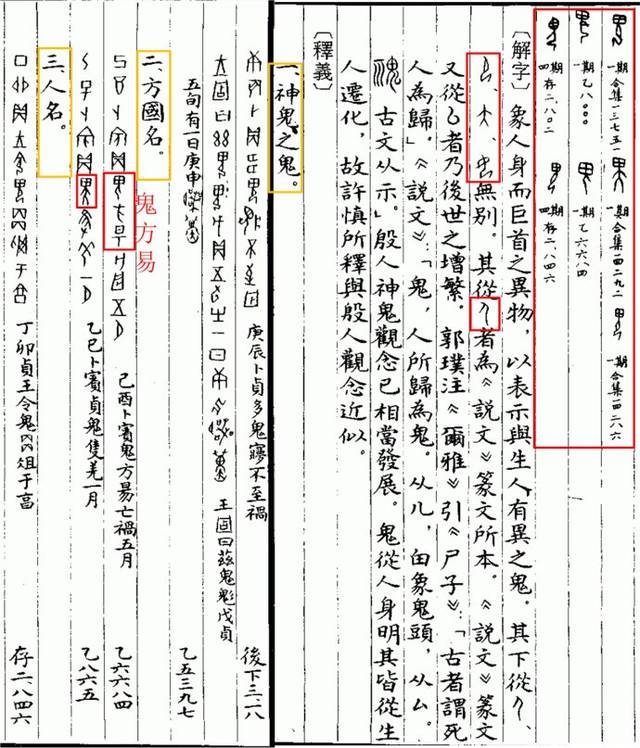 一期 合集一三七五一 一期 合集一四二九二 一期 合集一四二八六
一期 乙八〇〇〇 一期 乙六六八四
四期 存二.八〇二 四期 存二.八四六
〔解字〕象人身而巨首之異物，以表示與生人有異之鬼。其下從、
、、無別。其從者為《說文》篆文所本。《說文》篆文
又從厶者乃後世之增繁。郭璞注《爾雅》引《尸子》：「古者謂死
人為歸」，《說文》：「鬼，人所歸為鬼。从儿，甶象鬼頭，从厶。
古文从示」殷人神鬼觀念已相當發展。鬼從人身明其皆從生
人遷化，故許慎所釋與殷人觀念近似。
〔釋義〕
一、神鬼之鬼。
庚辰卜貞多鬼寢不至禍 後下三.一八
王固曰茲鬼鬽戊貞
五旬有一日庚申 乙五三九七
二、方國名。
鬼方易
己酉卜賓鬼方易亡禍五月 乙六六八四
乙巳卜賓貞鬼隻羌一月 乙八六五
三、人名。
丁卯貞王令鬼 于 存二.八四六